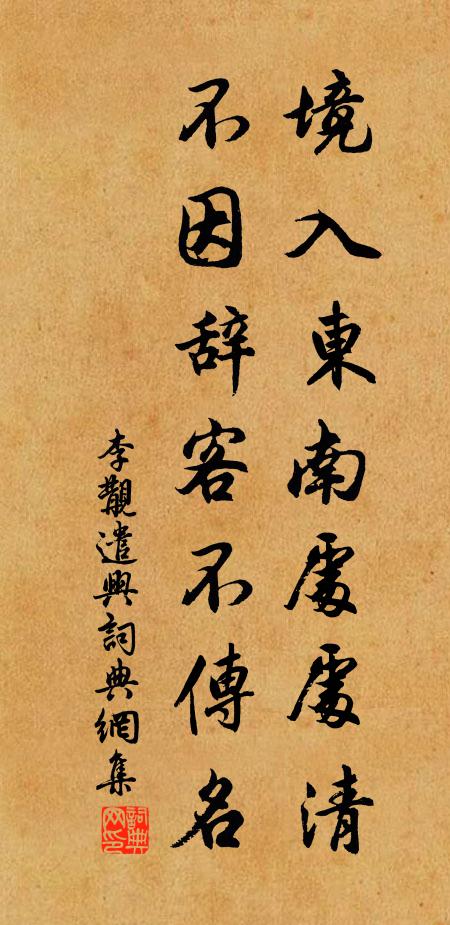 境入東南處處清
不因辞客不傳名
李觀遣興詞典網集
詞典網印